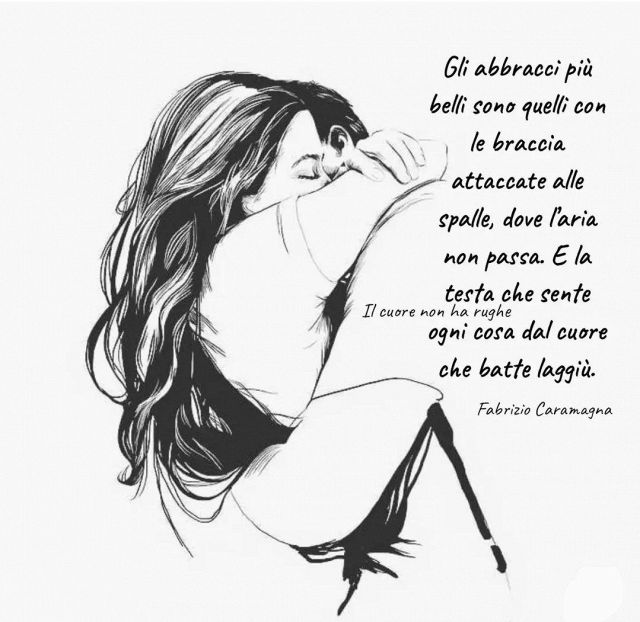 Gli abbracci più
belli sono quelli con
le braccia
attaccate alle
spalle, dove l'aria
non passa. E la
testa che sente
Il cuore non ha rughe
ogni cosa dal cuore
che batte laggiù.
Fabrizio Caramagna